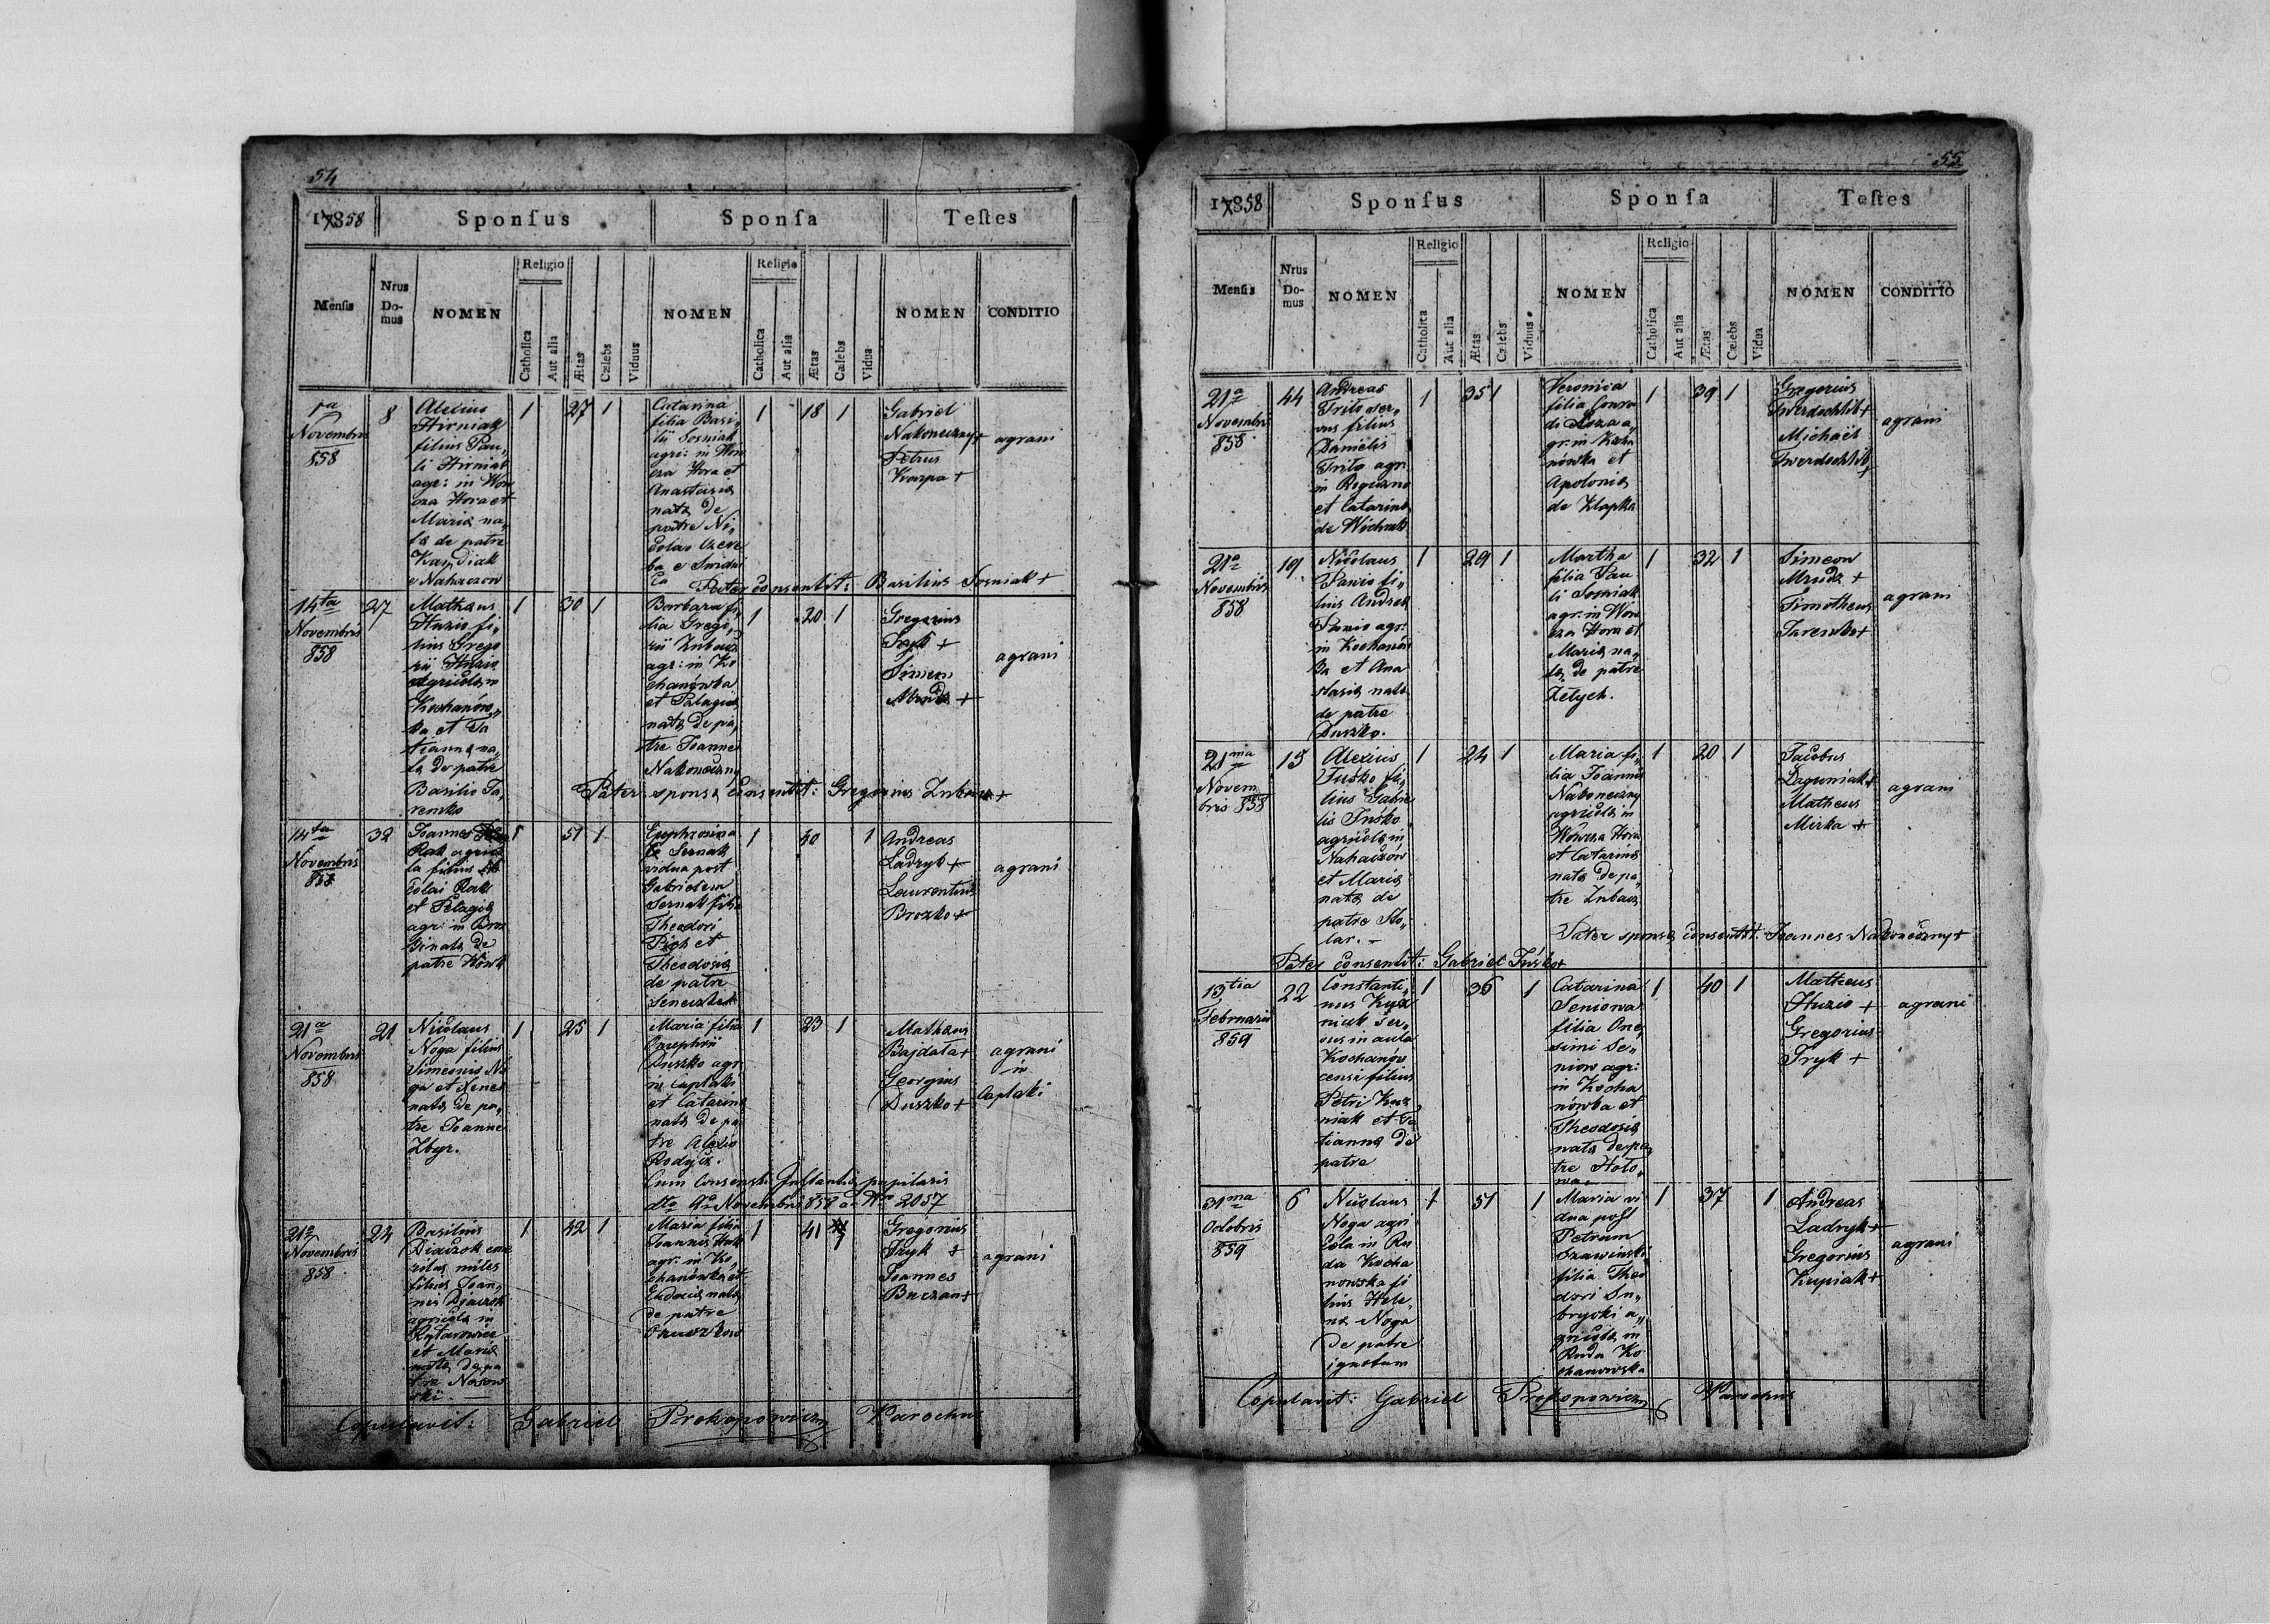 54
17858
Sponsus
Sponsa
Testes
Mensis
Nrus Do-mus
NOMEN
Religio
Catholica
Aut alia
Ætas
Cælebs
Viduus
NOMEN
Religio
Catholica
Aut alia
Ætas
Cælebs
Vidua
NOMEN
CONDITIO
1a
Novembris
858
8
Alexius
Hirniak
filius Pau„
li Hirniak
agr: in Wow
cza Hora et
Maria na„
ta de patre
Kandiak
e Nahaczow
1
27
1
Catarina
filia Basi„
lii Sosniak
agr: in Wow
cza Hora et
Anastasia
nata de
patre Ni„
colao
1
18
1
Gabriel
Nakoneczny+
Petrus
Karpa +
agrani
Pater consentit: Basilius Sosniak +
14ta
Novembris
858
27
Mathaus
Huzio fi„
lius Grego
rii Huzio
Agricola in
Kochanów„
ka et Ta
tianna na„
ta de patre
Basilio Ja„
remko
1
30
1
Barbara fi„
lia Grego„
rii Zubacz
agr: in Ko
chanówka
et Palagia
nata de pa„
tre Joanne
Nakoneczny
1
20
1
Gregorius
Fryk +
Simeon
Mruda +
agrani
Pater sponsa consentit: Gregorius Zubacz +
14ta
Novembris
858
32
Joannes
Rak agrico
la filius Ni
colai Rak
et Pelagia
agr: in Bro
nata de
patre Wowk
1
51
1
Euphrosina
Sernak
vidua post
Gabrielem
Sernak filia
Theodori
et
Theodosia
de patre
1
40
1
Andreas
Ladryk +
Laurentius
Brozko +
agrani
21a
Novembris
858
21
Nicolaus
Noga filius
Simeonis No
ga et Xenia
nata de pa„
tre Joanne
Zbyr.
1
25
1
Maria filia
Onuphrii
Duszko agr
in Caplaki
et Catarina
nata de pa
tre Alexio
1
23
1
Mathaus
Bajdala +
Georgius
Duszko +
agrani
in
Caplaki
Cum Consensu Instantia pupilaris
dto 9a Novembris 858 a Nro 2057
21a
Novembris
858
24
Basilius
Diaczok eme
ritus miles
filius Joan„
nis Diaczok
agricola in
et Maria
nata de pa
tre Nosow
ski
1
42
1
Maria filia
Joannis Huk
agr: in Ko„
chanówka et
Eudocia nata
de patre
1
41
1
Gregorius
Fryk +
Joannes
Buczan +
agrani
Copulavit: Gabriel Prokopowicz Parochus
55
17858
Sponsus
Sponsa
Testes
Mensis
Nrus Do-mus
NOMEN
Religio
Catholica
Aut alia
Ætas
Cælebs
Viduus
NOMEN
Religio
Catholica
Aut alia
Ætas
Cælebs
Vidua
NOMEN
CONDITIO
21a
Novembris
858
44
Andreas
Trito ser„
vus filius
Danielis
Trito agr:
in
et Catarina
de
1
35
1
Veronica
filia Conra
di Koza a„
gr: in Kocha
nówka et
Apolonia
de Klapka
1
39
1
Gregorius
Twerdochlib +
Michaël
Twerdochlib
+
agrani
21a
Novembris
858
19
Nicolaus
Panio fi„
lius Andrea
Panio agr:
in Kochanów
ka et Ana
stasia nata
de patre
Duszko.
1
29
1
Martha
filia Pau
li Sosniak
agr: in Wow
cza Hora et
Maria na„
ta de patre
1
32
1
Simeon
Mruda +
Timotheus
Jaremko +
agrani
21ma
Novem
bris 858
15
Alexius
Juśko fi„
lius Gabrie
lis Juśko
agricola in
Nahaczów
et Maria
nata de
patre Sto„
lar. –
1
24
1
Maria fi„
lia Joannis
Nakoneczny
agricola in
Wowcza Hora
et Catarina
nata de pa„
tre Zubacz
1
20
1
Jacobus
Laguniak +
Matheus
Mirka +
agrani
Pater sponsa consentit: Joannes Nakoneczny +
Pater consentit: Gabriel Juśko +
13tia
Februarii
859
22
Constanti„
nus Kuz
niak ser„
vus in aula
Kochanów
censi filius
Petri Kuz
niak et Ta
tianna de
patre
1
36
1
Catarina
Seniowa
filia One„
simi Se„
niow agr:
in Kocha
nówka et
Theodosia
nata de pa„
tre Holo„
1
40
1
Matheus
Huzio +
Gregorius
Fryk +
agrani
31ma
Octobris
859
6
Nicolaus
Noga agri
cola in Ru
da Kocha
nowska fi
lius Hele„
na Noga
de patre
ignotum
1
51
1
Maria vi
dua post
Petrum
filia Theo
dori
a„
gricola in
Ruda Ko
chanowska
1
37
1
Andreas
Ladryk +
Gregorius
Kupiak +
agrani
Copulavit: Gabriel Prokopowicz Parochus